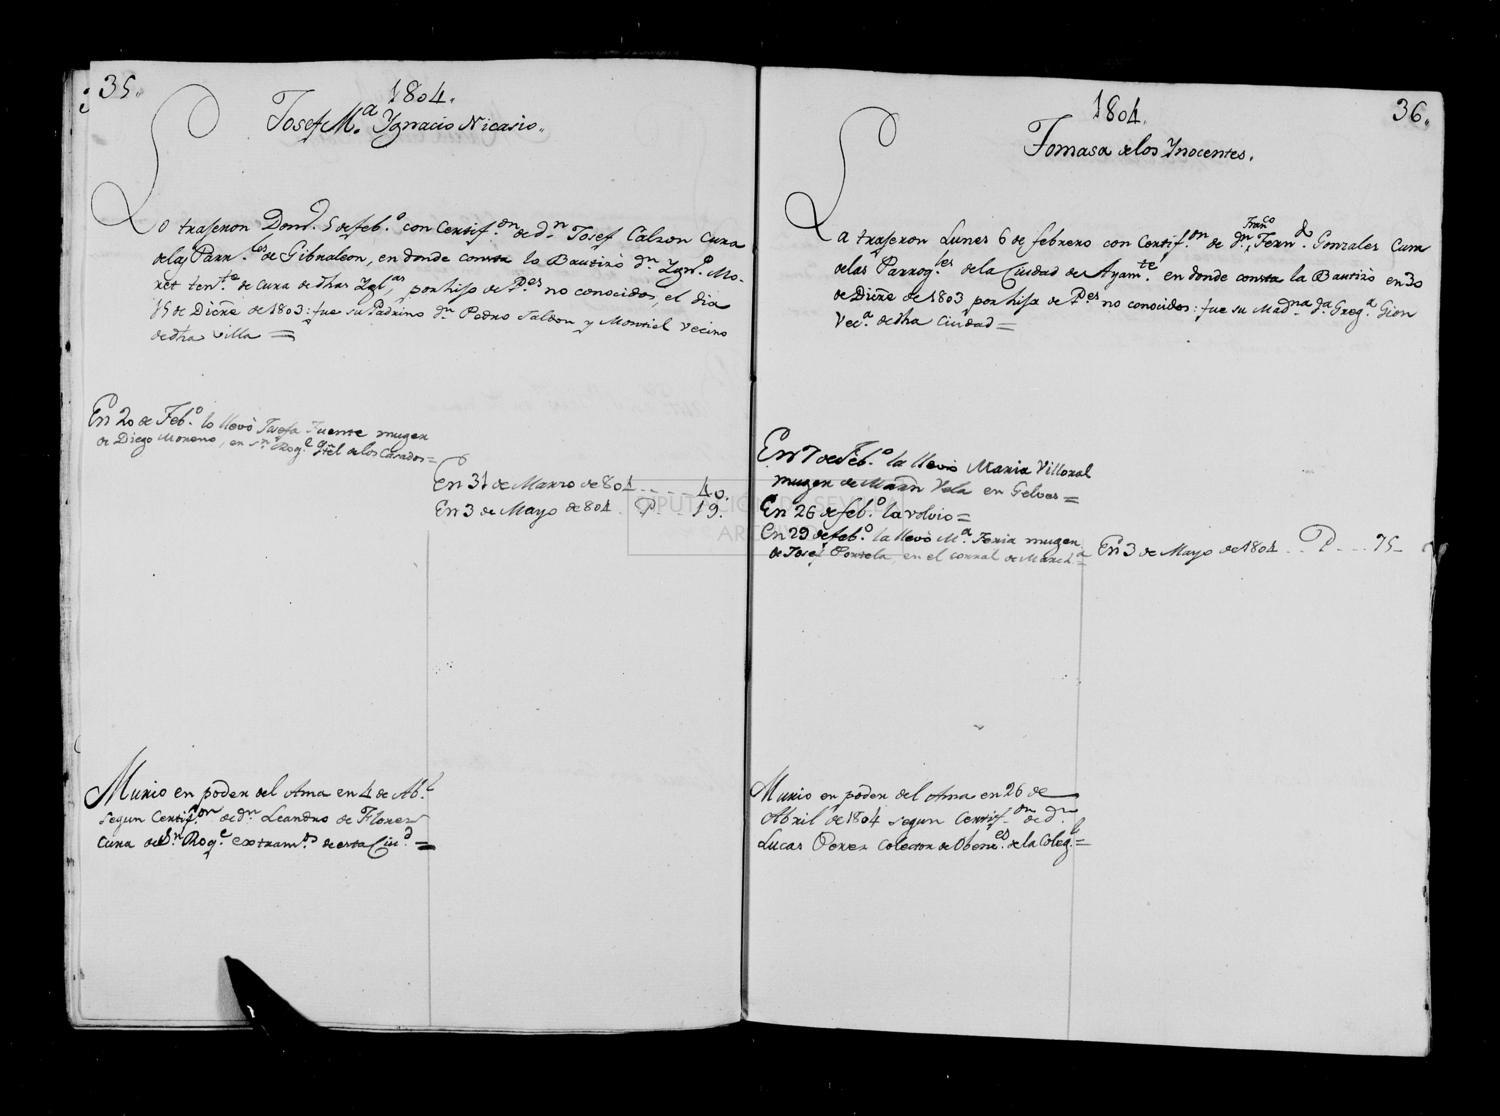 35.
1804.
Josef M.ª Ygnacio Nicasio..
Lo trageron Dom.º 5 de feb.º con Certif.on de d.n Josef Calzon Cura
de las Parr.les de Gibraleon, en donde consta lo Bautizó d.n Ygn.º Mo-
ret ten.te de cura de dhas Ygl.as, por hijo de P.es no conocidos, el dia
15 de Dicre de 1803: fue su Padrino d.n Pedro Saldon y Montiel vecino
de dha villa =
En 20 de Feb.º lo llevó Josefa Fuente muger
de Diego Moreno, en S.n Roq.e
de los Casados=
En 31 de Marzo de 804 ..... 40.
En 3 de Mayo de 804 . P ... 19.
Murio en poder del Ama en 4 de Ab.l
segun Certif.on de d.n Leandro de Flores
Cura de S.n Roq.e extram.s de esta Ciu.d =
36.
1804.
Tomasa de los Ynocentes.
La trageron Lunes 6 de febrero con Certif.on de d.n Franco Fern.do Gonzales Cura
de las Parroq.les de la Ciudad de Ayam.te en donde consta la Bautizó en 30
de Dicre de 1803 por hija de P.es no conocidos: fue su Mad.na d.a Greg.a Gion
Vec.a de dha Ciudad =
En 7 de Feb.º la llevó Maria Villoral
muger de Marn Vela en Gelves =
En 26 de feb.º la volvio =
En 29 de feb.º la llevó M.a Feria muger
de Josef Portela, en el corral de March.a =
En 3 de Mayo de 1804 .. P .... 75-
Murio en poder del Ama en 26 de
Abril de 1804 segun Certif.on de d.n
Lucas Perez Colector de Obenc.es de la Coleg.l =
DIPUTACIÓN DE SEVILLA
ARCHIVO